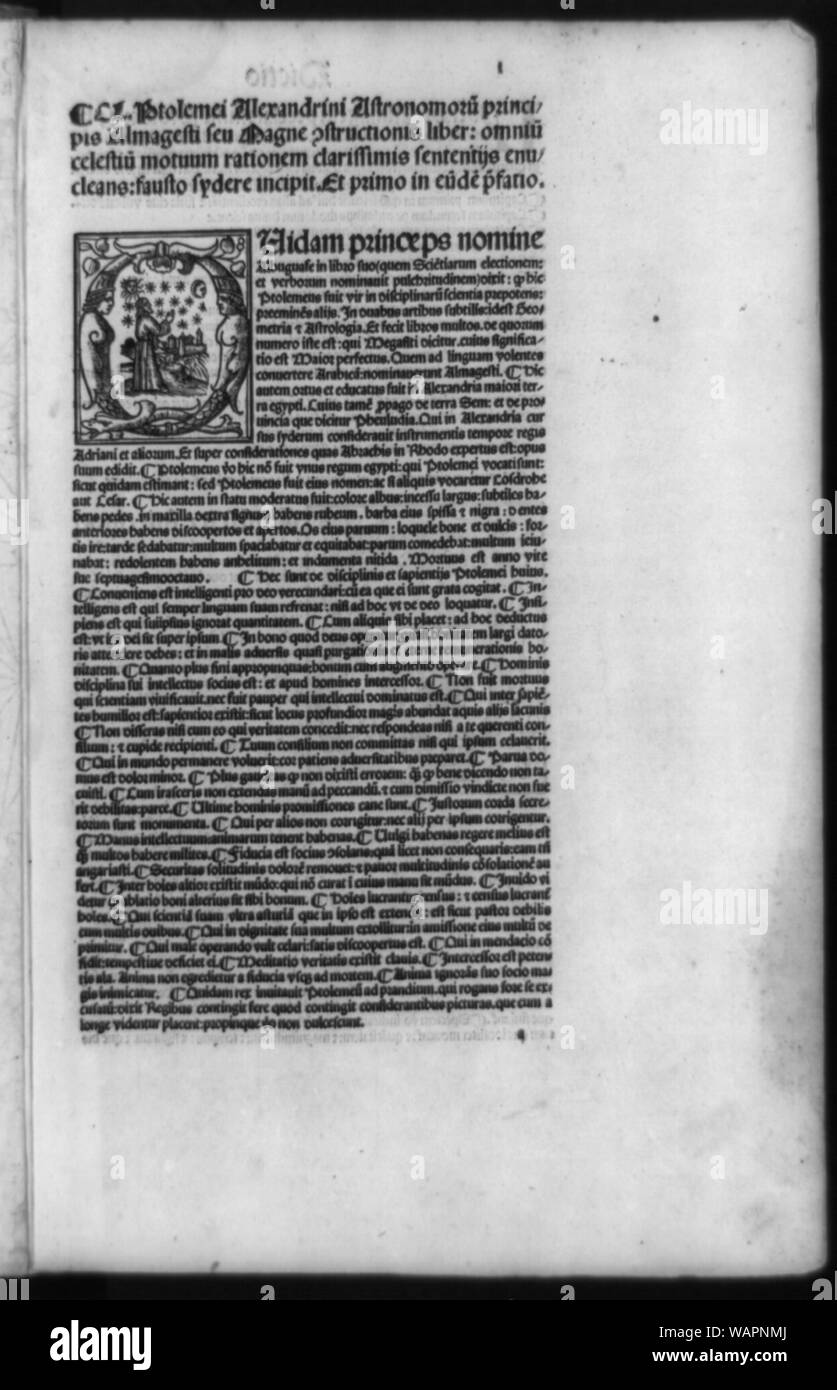 Dictio
1
¶ Cl. Ptolemei Alexandrini Astronomorū princi/
pis Almagesti seu Magne ɔstructionis liber: omniū
celestiū motuum rationem clarissimis sententijs enu/
cleans: fausto sydere incipit. Et primo in eūdē p̄fatio.
Uidam princeps nomine
Albuguafe in libro suo (quem Sciētiarum electionem:
et verborum nominauit pulchritudinem) dixit: ꝙ hic
Ptolemeus fuit vir in disciplinarū scientia prepotens:
preeminēs alijs. In duabus artibus subtilis: idest Geo-
metria ⁊ Astrologia. Et fecit libros multos. de quorum
numero iste est: qui Megasiti dicitur. cuius significa-
tio est Maior perfectus. Quem ad linguam volentes
conuertere Arabicā: nominauerunt Almagesti. ¶ Hic
autem ortus et educatus fuit in Alexandria maiori ter-
ra egypti. Cuius tamē ꝓpago de terra Sem: et de pro-
uincia que dicitur Pheuludia. Qui in Alexandria cur
sus syderum considerauit instrumentis tempore regis
Adriani et aliorum. Et super considerationes quas Abrachis in Rhodo expertus est: opus
suum edidit. ¶ Ptolemeus v̄o hic nō fuit vnus regum egypti: qui Ptolemei vocati sunt:
sicut quidam estimant: sed Ptolemeus fuit eius nomen: ac si aliquis vocaretur Cosdrohe
aut Cesar. ¶ Hic autem in statu moderatus fuit: colore albus: incessu largus: subtiles ha-
bens pedes. in maxilla dextra signum habens rubeum. barba eius spissa ⁊ nigra: dentes
anteriores habens discoopertos et apertos. Os eius paruum: loquele bone et dulcis: for-
tis ire: tarde sedabatur: multum spaciabatur et equitabat: parum comedebat: multum ieiu-
nabat: redolentem habens anhelitum: et indumenta nitida. Mortuus est anno vite
sue septuagesimooctauo. ¶ Hec sunt de disciplinis et sapientijs Ptolemei huius.
¶ Conueniens est intelligenti pro deo verecundari: cū ea que ei sunt grata cogitat. ¶ In-
telligens est qui semper linguam suam refrenat: nisi ad hoc vt de deo loquatur. ¶ Insi-
piens est qui suiipsius ignorat quantitatem. ¶ Cum aliquis sibi placet: ad hoc deductus
est: vt ira dei sit super ipsum. ¶ In bono quod deus tem largi dato-
ris attendere debes: et in malis aduersis quasi purgationem remunerationis bo-
nitatem. ¶ Quanto plus fini appropinquas: bonum cum augmento ¶ Hominis
disciplina sui intellectus socius est: et apud homines intercessor. ¶ Non fuit mortuus
qui scientiam viuificauit. nec fuit pauper qui intellectui dominatus est. ¶ Qui inter sapiē-
tes humilior est: sapientior existit: sicut locus profundior magis abundat aquis alijs lacunis
¶ Non disseras nisi cum eo qui veritatem concedit: nec respondeas nisi a te querenti con-
silium: ⁊ cupide recipienti. ¶ Tuum consilium non committas nisi qui ipsum celauerit.
¶ Qui in mundo permanere voluerit: cor patiens aduersitatibus preparet. ¶ Parua do-
mus est dolor minor. ¶ Plus gaudeas ꝙ non dixisti errorem: ꝙ̄ ꝙ bene dicendo non ta-
cuisti. ¶ Cum irasceris non extendas manū ad peccandū. ⁊ cum dimissio vindicte non fue
rit debilitas: parce. ¶ Ultime hominis promissiones cane sunt. ¶ Justorum corda secre-
torum sunt monumenta. ¶ Qui per alios non corrigitur: nec alij per ipsum corrigentur.
¶ Manus intellectuum: animarum tenent habenas. ¶ Uulgi habenas regere melius est
ꝙ̄ multos habere milites. ¶ Fiducia est socius ɔsolans: quā licet non consequaris: eam tñ
angariasti. ¶ Securitas solitudinis dolorē remouet: ⁊ pauor multitudinis cōsolationē au
fert. ¶ Inter hoies altior existit mūdo: qui nō curat ī cuius manu sit mūdus. ¶ Inuido vi
detur ablatio boni alterius sit sibi bonum. ¶ Doles lucrantur census: ⁊ census lucrant̄
hoies. ¶ Qui scientiā suam vltra asturiā que in ipso est extendit: est sicut pastor debilis
cum multis ouibus. ¶ Qui in dignitate sua multum extollitur: in amissione eius multū de
primitur. ¶ Qui male operando vult celari: satis discoopertus est. ¶ Qui in mendacio cō
fidit: tempestiue deficiet ei. ¶ Meditatio veritatis existit clauis. ¶ Intercessor est peten
tis ala. Anima non egredietur a fiducia vsqꝫ ad mortem. ¶ Anima ignorās suo socio ma
gis inimicatur. ¶ Quidam rex inuitauit Ptolemeū ad prandium. qui rogans fore se ex-
cusatū: dixit Regibus contingit fere quod contingit considerantibus picturas. que cum a
longe videntur placent: propinque do non dulcescunt.
a
alamy
Image ID: WAPNMJ
www.alamy.com